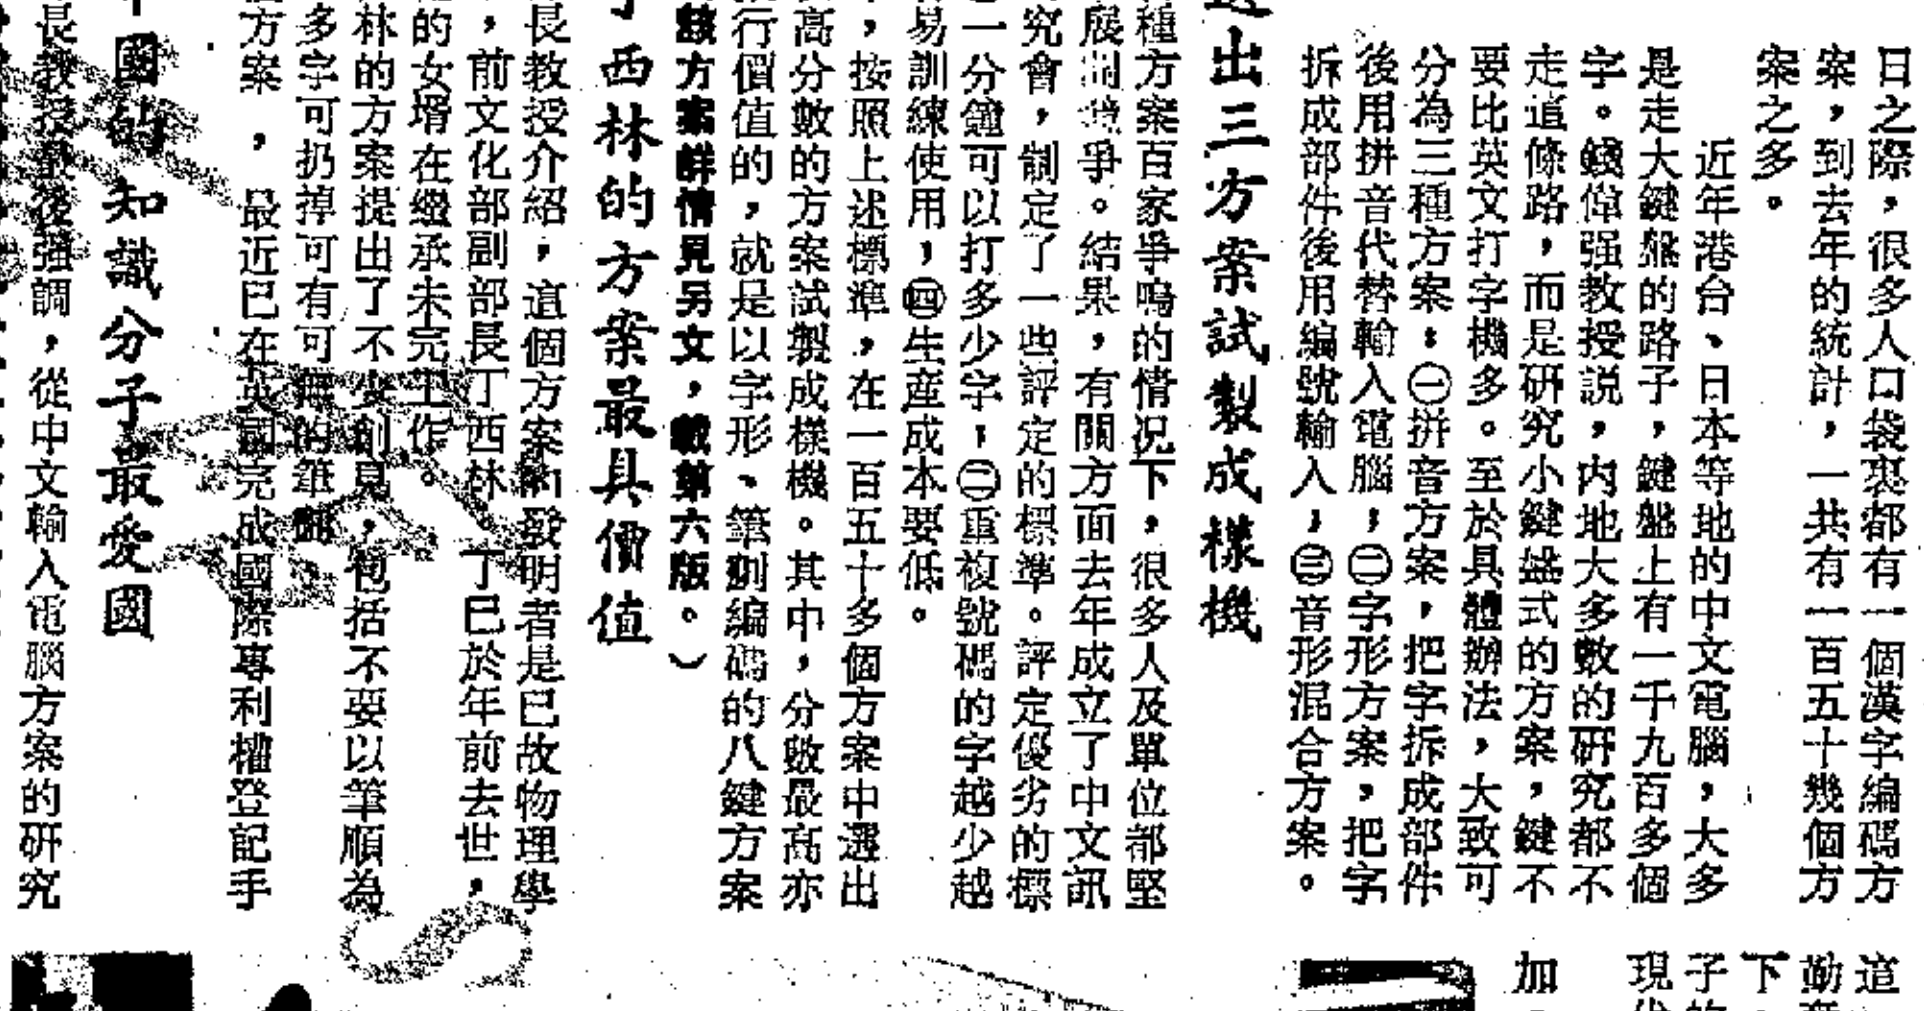 日之際，很多人口袋裏都有一個漢字編碼方
案，到去年的統計，一共有一百五十幾個方
案之多。
近年港台、日本等地的中文電腦，大多
是走大鍵盤的路子，鍵盤上有一千九百多個
字。錢偉强教授説，内地大多數的研究都不
走道條路，而是研究小鍵盤式的方案，鍵不
要比英文打字機多。至於具體辦法，大致可
分為三種方案：㊀拼音方案，把字拆成部件
後用拼音代替輸入電腦；㊁字形方案，把字
拆成部件後用編號輸入；㊂音形混合方案。
出三方案試製成樣機
種方案百家爭鳴的情况下，很多人及單位都堅
展開競爭。結果，有關方面去年成立了中文訊
究會，制定了一些評定的標準。評定優劣的標
一分鐘可以打多少字，㊁重複號碼的字越少越
易訓練使用，㊃生産成本要低。
，按照上述標準，在一百五十多個方案中選出
高分數的方案試製成樣機。其中，分數最高亦
行價值的，就是以字形、筆劃編碼的八鍵方案
該方案詳情見另文，載第六版。）
丁西林的方案最具價值
長教授介紹，這個方案的發明者是已故物理學
，前文化部副部長丁西林。丁已於年前去世，
的女壻在繼承未完工作。
林的方案提出了不少創見，包括不要以筆順為
多字可扔掉可有可無的筆劃
方案，最近已在英國完成國際專利權登記手
中國的知識分子最愛國
長教授最後強調，從中文輸入電腦方案的研究
這
勤
下
子的
現代
加